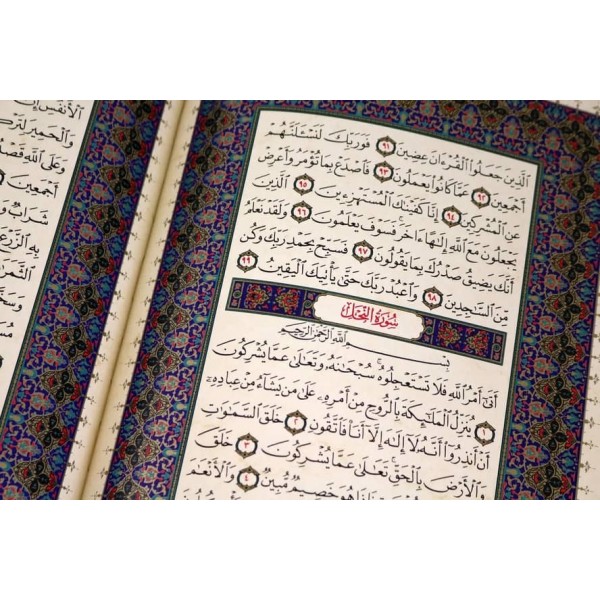 ٱلَّذِينَ جَعَلُوا۟ ٱلْقُرْءَانَ عِضِينَ ٩١ فَوَرَبِّكَ لَنَسْـَٔلَنَّهُمْ
أَجْمَعِينَ ٩٢ عَمَّا كَانُوا۟ يَعْمَلُونَ ٩٣ فَٱصْدَعْ بِمَا تُؤْمَرُ وَأَعْرِضْ
عَنِ ٱلْمُشْرِكِينَ ٩٤ إِنَّا كَفَيْنَٰكَ ٱلْمُسْتَهْزِءِينَ ٩٥ ٱلَّذِينَ
يَجْعَلُونَ مَعَ ٱللَّهِ إِلَٰهًا ءَاخَرَ فَسَوْفَ يَعْلَمُونَ ٩٦ وَلَقَدْ نَعْلَمُ
أَنَّكَ يَضِيقُ صَدْرُكَ بِمَا يَقُولُونَ ٩٧ فَسَبِّحْ بِحَمْدِ رَبِّكَ وَكُن
مِّنَ ٱلسَّٰجِدِينَ ٩٨ وَٱعْبُدْ رَبَّكَ حَتَّىٰ يَأْتِيَكَ ٱلْيَقِينُ ٩٩
سُورَةُ النَّحْلِ
بِسْمِ ٱللَّهِ ٱلرَّحْمَٰنِ ٱلرَّحِيمِ
أَتَىٰٓ أَمْرُ ٱللَّهِ فَلَا تَسْتَعْجِلُوهُ سُبْحَٰنَهُۥ وَتَعَٰلَىٰ عَمَّا يُشْرِكُونَ
١ يُنَزِّلُ ٱلْمَلَٰٓئِكَةَ بِٱلرُّوحِ مِنْ أَمْرِهِۦ عَلَىٰ مَن يَشَآءُ مِنْ عِبَادِهِۦٓ
أَنْ أَنذِرُوٓا۟ أَنَّهُۥ لَآ إِلَٰهَ إِلَّآ أَنَا۠ فَٱتَّقُونِ ٢ خَلَقَ ٱلسَّمَٰوَٰتِ
وَٱلْأَرْضَ بِٱلْحَقِّ تَعَٰلَىٰ عَمَّا يُشْرِكُونَ ٣ خَلَقَ
هُوَ خَصِيمٌ مُّبِينٌ ٤ وَٱلْأَنْعَٰمَ
ٱلْأَنفُسِ إِنَّ
وَٱلْحَمِيرَ
وَعَلَى ٱللَّهِ قَصْدُ
أَجْمَعِينَ
شَرَابٌ
بِهِ ٱلزَّرْعَ